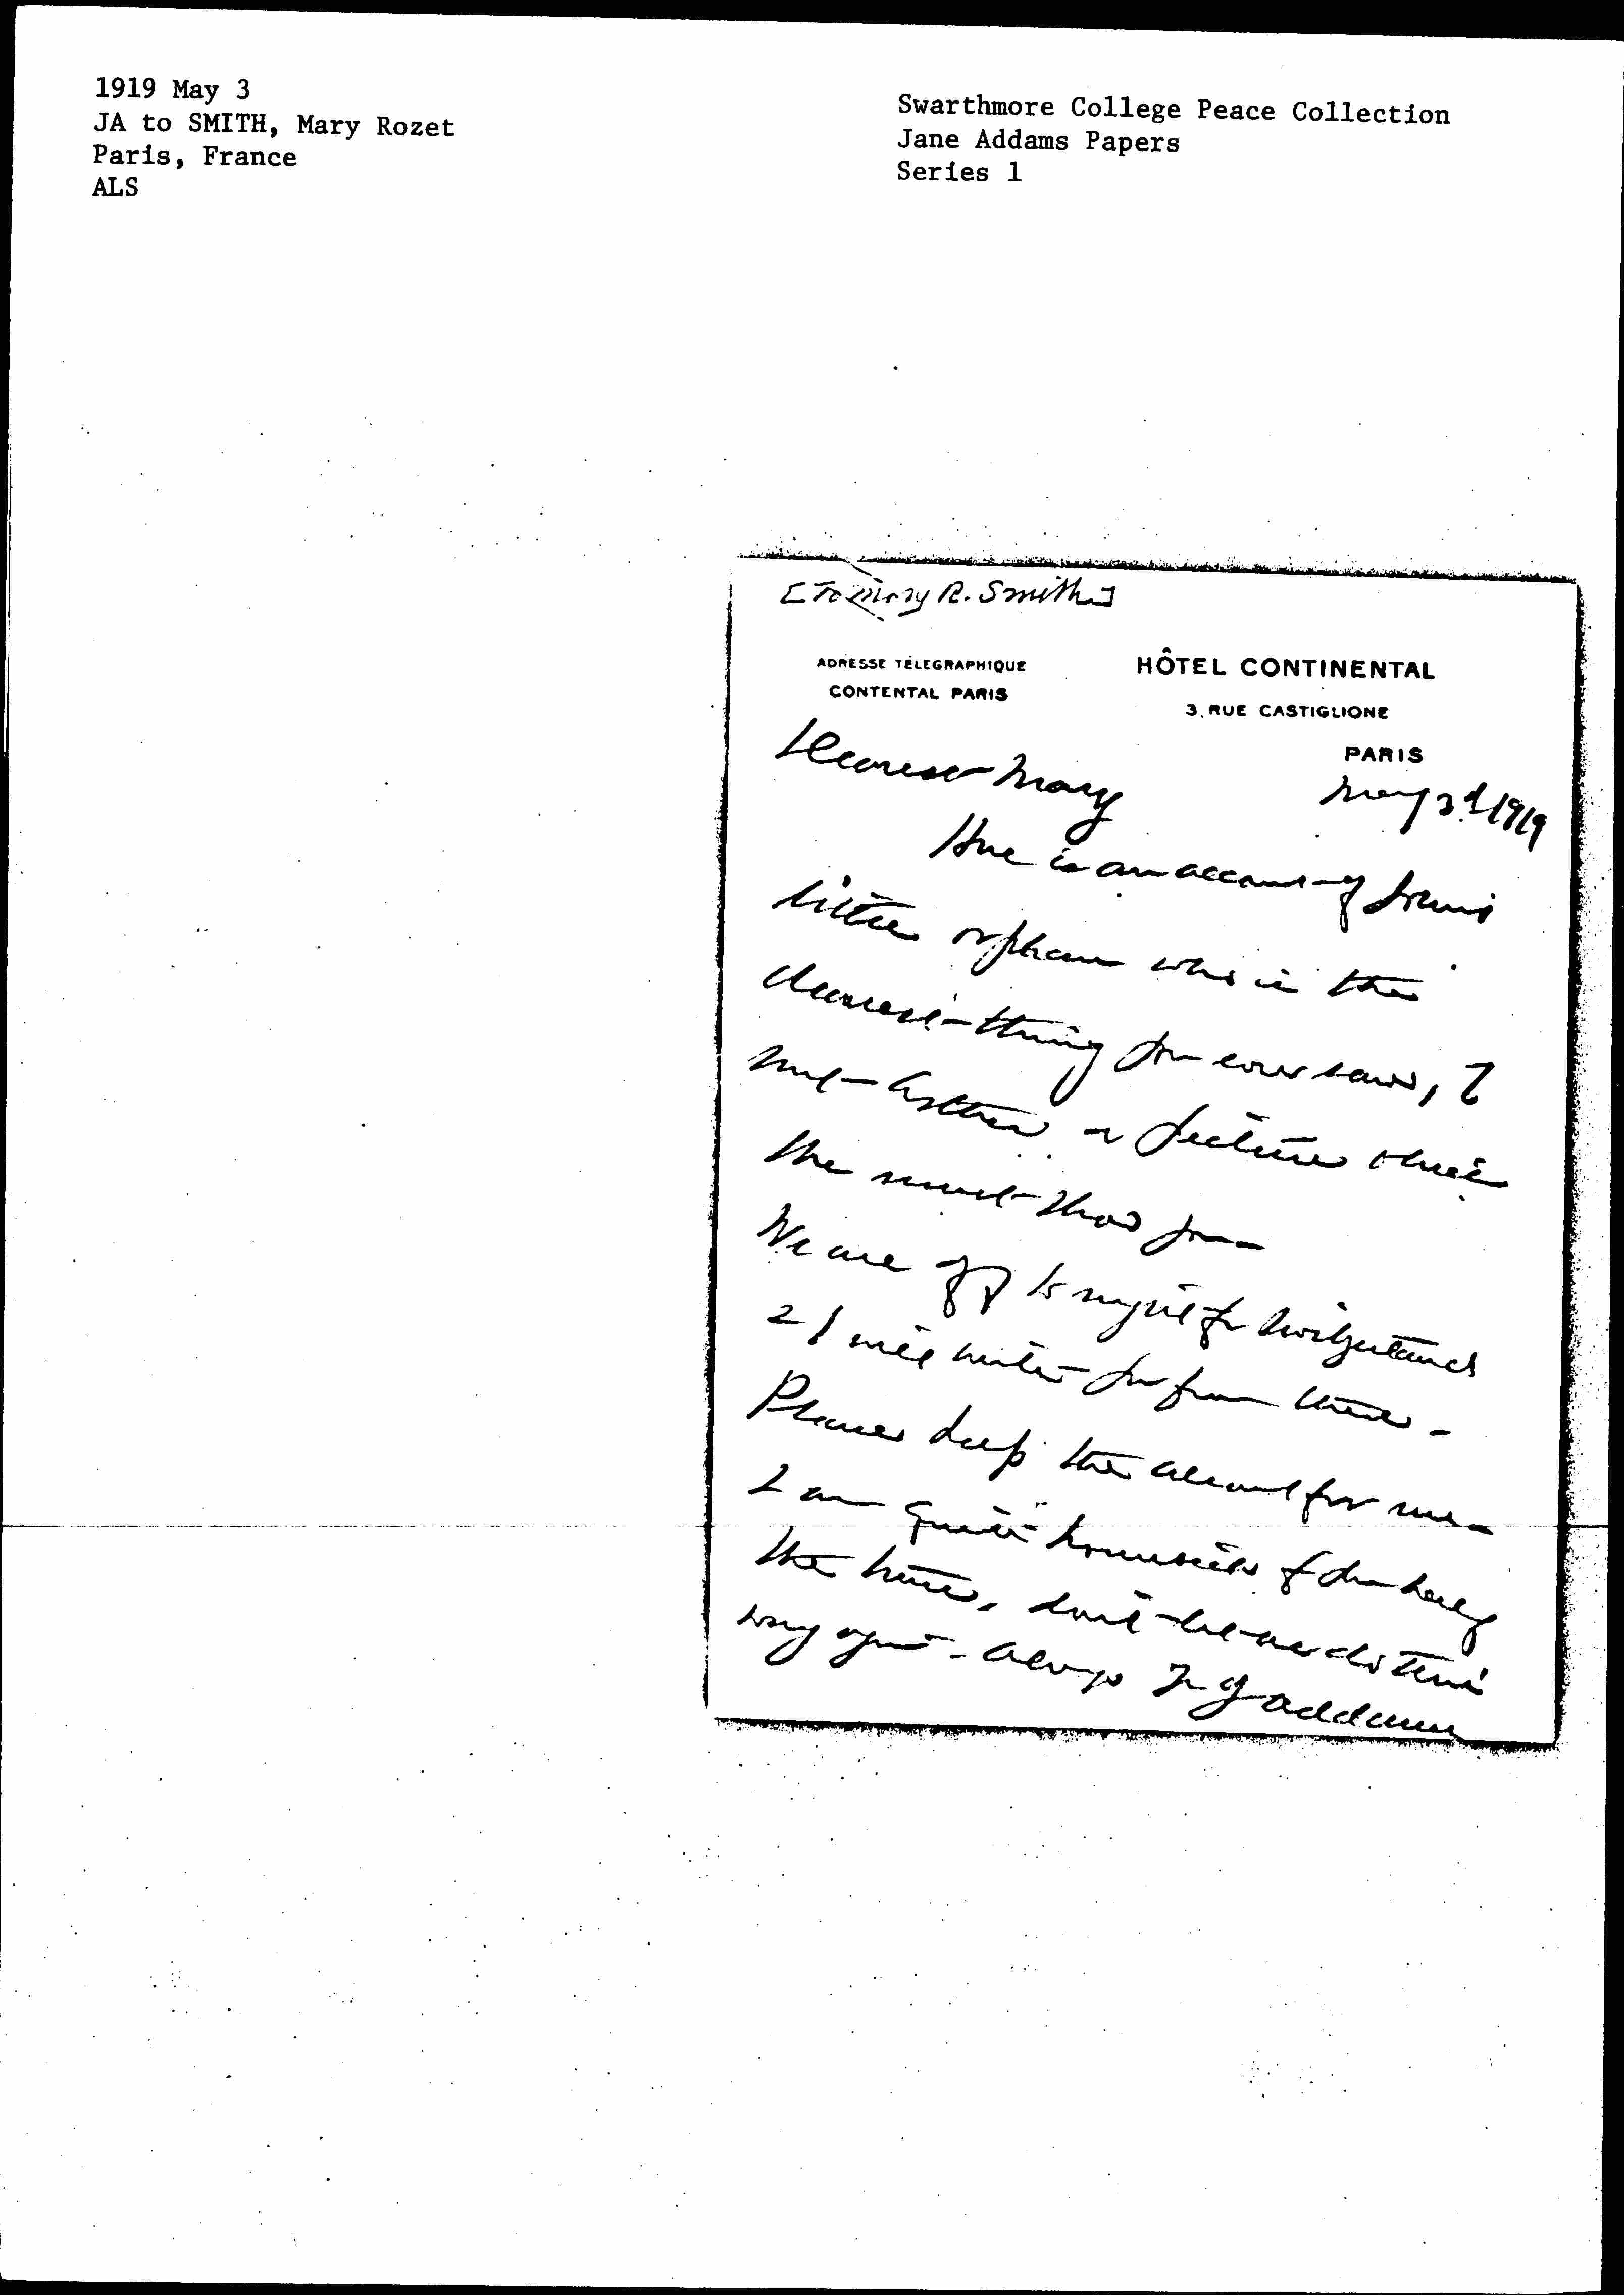 1919 May 3
JA to SMITH, Mary Rozet
Paris, France
ALS
Swarthmore College Peace Collection
Jane Addams Papers
Series 1
[To Mary R. Smith]
ADRESSE TÉLÉGRAPHIQUE
CONTENTAL PARIS
HÔTEL CONTINENTAL
3, RUE CASTIGLIONE
PARIS
May 3d 1919
Dearest Mary
Here is an account of your
little orphan who is the
dearest thing you ever saw, I
the
We are off to night for Switzerland
& I will write you from there -
Please keep the account for me -
I am quite homesick for you half
the time, don't let us do this
way again - Always Yr J Addams